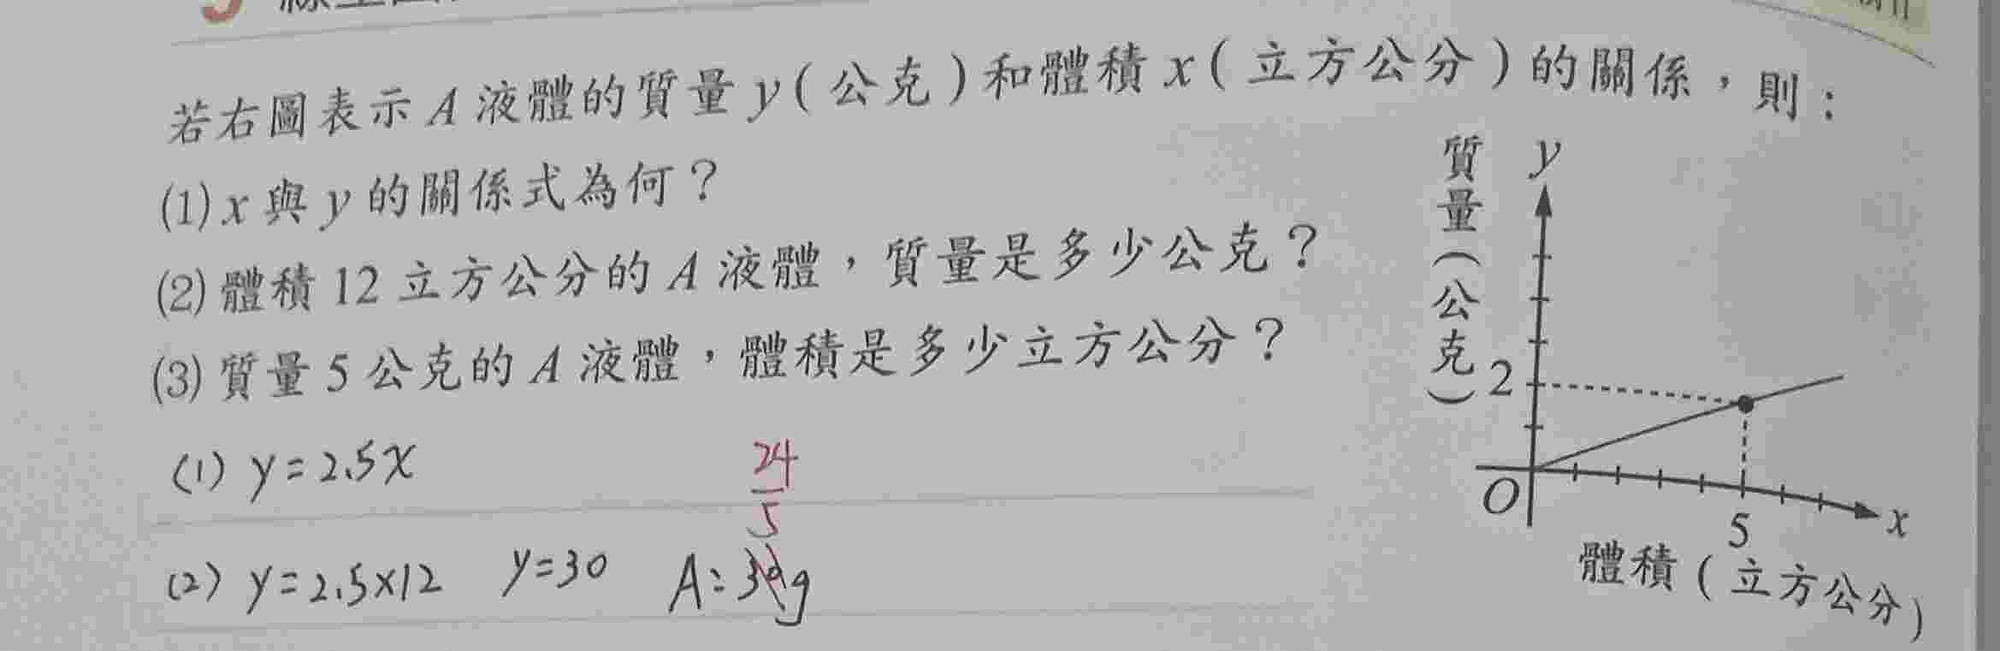 若右圖表示 A 液體的質量 y ( 公克 ) 和體積 x ( 立方公分 ) 的關係，則：
(1) x 與 y 的關係式為何？
(2) 體積 12 立方公分的 A 液體，質量是多少公克？
(3) 質量 5 公克的 A 液體，體積是多少立方公分？
質量(公克)
y
2
O
5
x
體積 ( 立方公分 )
(1) y = 2.5x
24
5
(2) y = 2.5×12 y=30 A: 30g